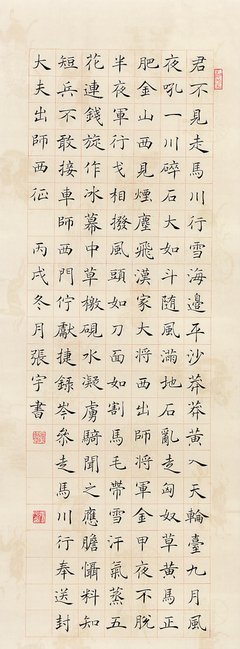 君不見走馬川行雪海邊平沙莽莽黃入天輪臺九月風
夜吼一川碎石大如斗随風滿地石亂走匈奴草黃馬正
肥金山西見煙塵飛漢家大將西出師將軍金甲夜不脫
半夜軍行戈相撥風頭如刀面如割馬毛帶雪汗氣蒸五
花連錢旋作冰幕中草檄硯水凝虜騎聞之應膽懾料知
短兵不敢接車師西門佇獻捷録岑叅走馬川行奉送封
大夫出師西征 丙戌冬月張宇書